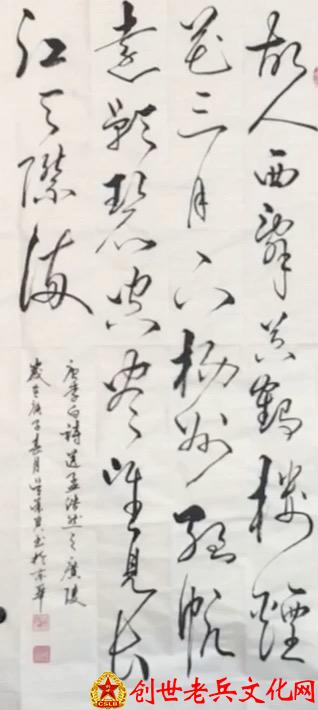 故人西辭黄鶴樓煙
花三月下揚州孤帆
遠影碧空盡唯見長
江天際流
唐李白詩送孟浩然之廣陵
歲在庚子春月書於京華
CSLB
创世老兵文化网